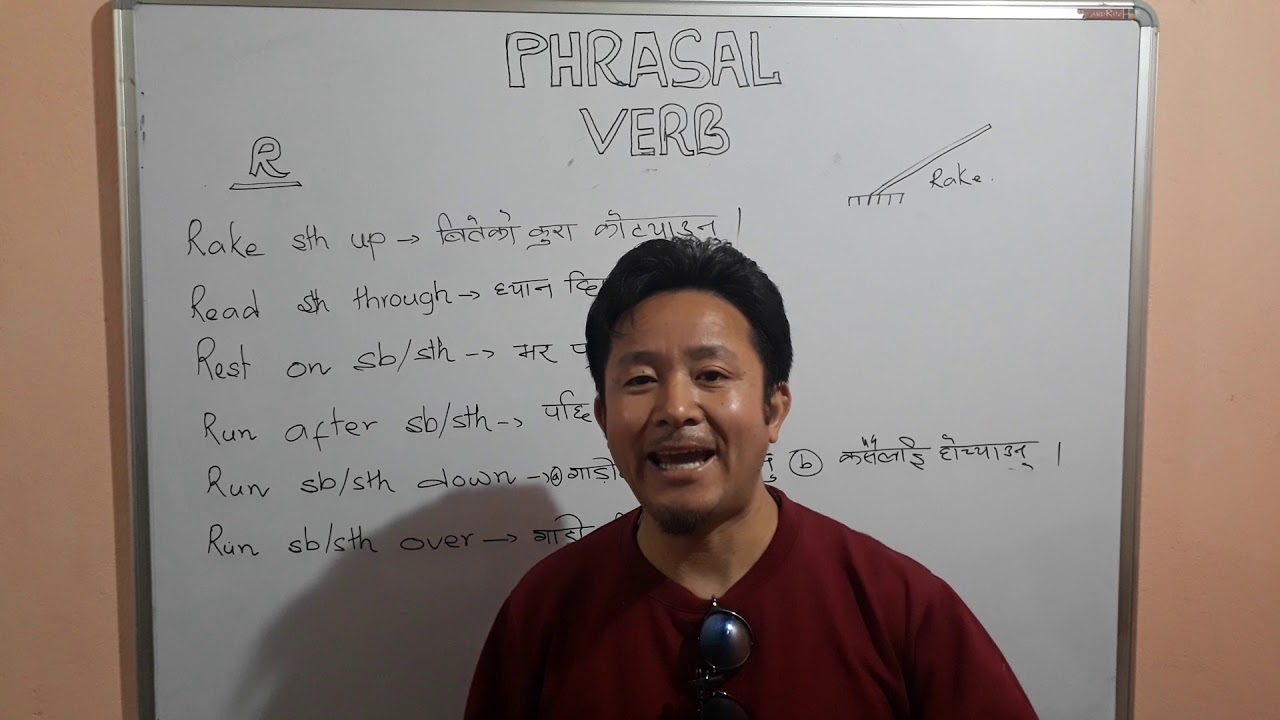 PHRASAL
VERB
R
Rake.
Rake sth up → बितेको कुरा कोट्याउनु ।
Read sth through → ध्यान
Rest on sb/sth → भर
Run after sb/sth → पछि
Run sb/sth down → ⓐ ⓑ कसैलाई होच्याउनु ।
Run sb/sth over →